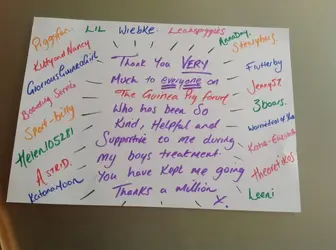 Piggyfur..
LiL
Wiebke
Leanspiggies
AnnaDay.
KittyandNancy
GloriousGuineaGirl
Boarding Secret
Sport-billy
Helen105281
ASTRID.
KatanaMoon
Thank You VERY
Much to everyone on
The Guinea Pig forum
Who has been So
Kind, Helpful and
Supportive to me during
my boys treatment.
You have kept me going
Thanks a million
x.
Flutterby
Jenny52
3boars.
theoretikos
Leeni